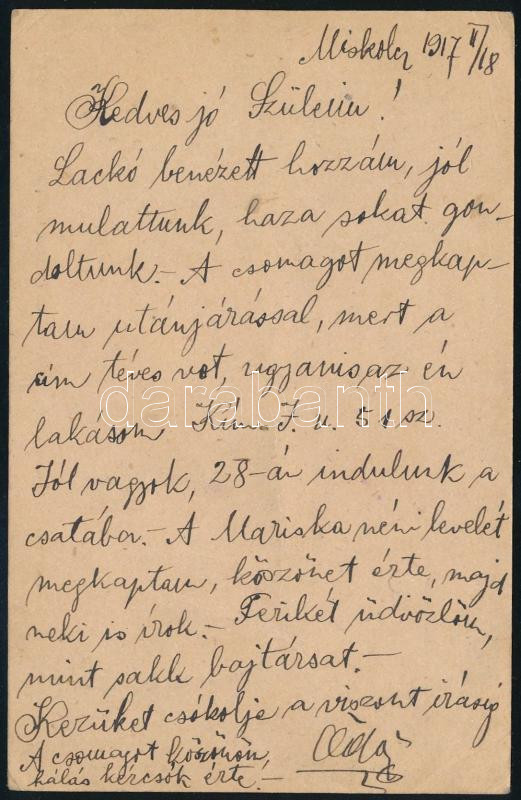 Miskolcz 1917 II/18
Kedves jó Szüleim!
Lackó benézett hozzám, jól
mulattunk, haza sokat gon-
doltunk.- A csomagot megkap-
tam utánjárással, mert a
cím téves vot, ugyanis, az én
lakásom J. u. 51 sz.
Jól vagyok, 28-án indulunk a
csatába.- A Mariska néni levelét
megkaptam, köszönet érte, majd
neki is írok.- Ferikét üdvözlöm,
mint sakk bajtársat.-
Kezüket csókolja a viszont írásig
A csomagot köszönöm,
hálás kézcsók érte.-
darabanth.com